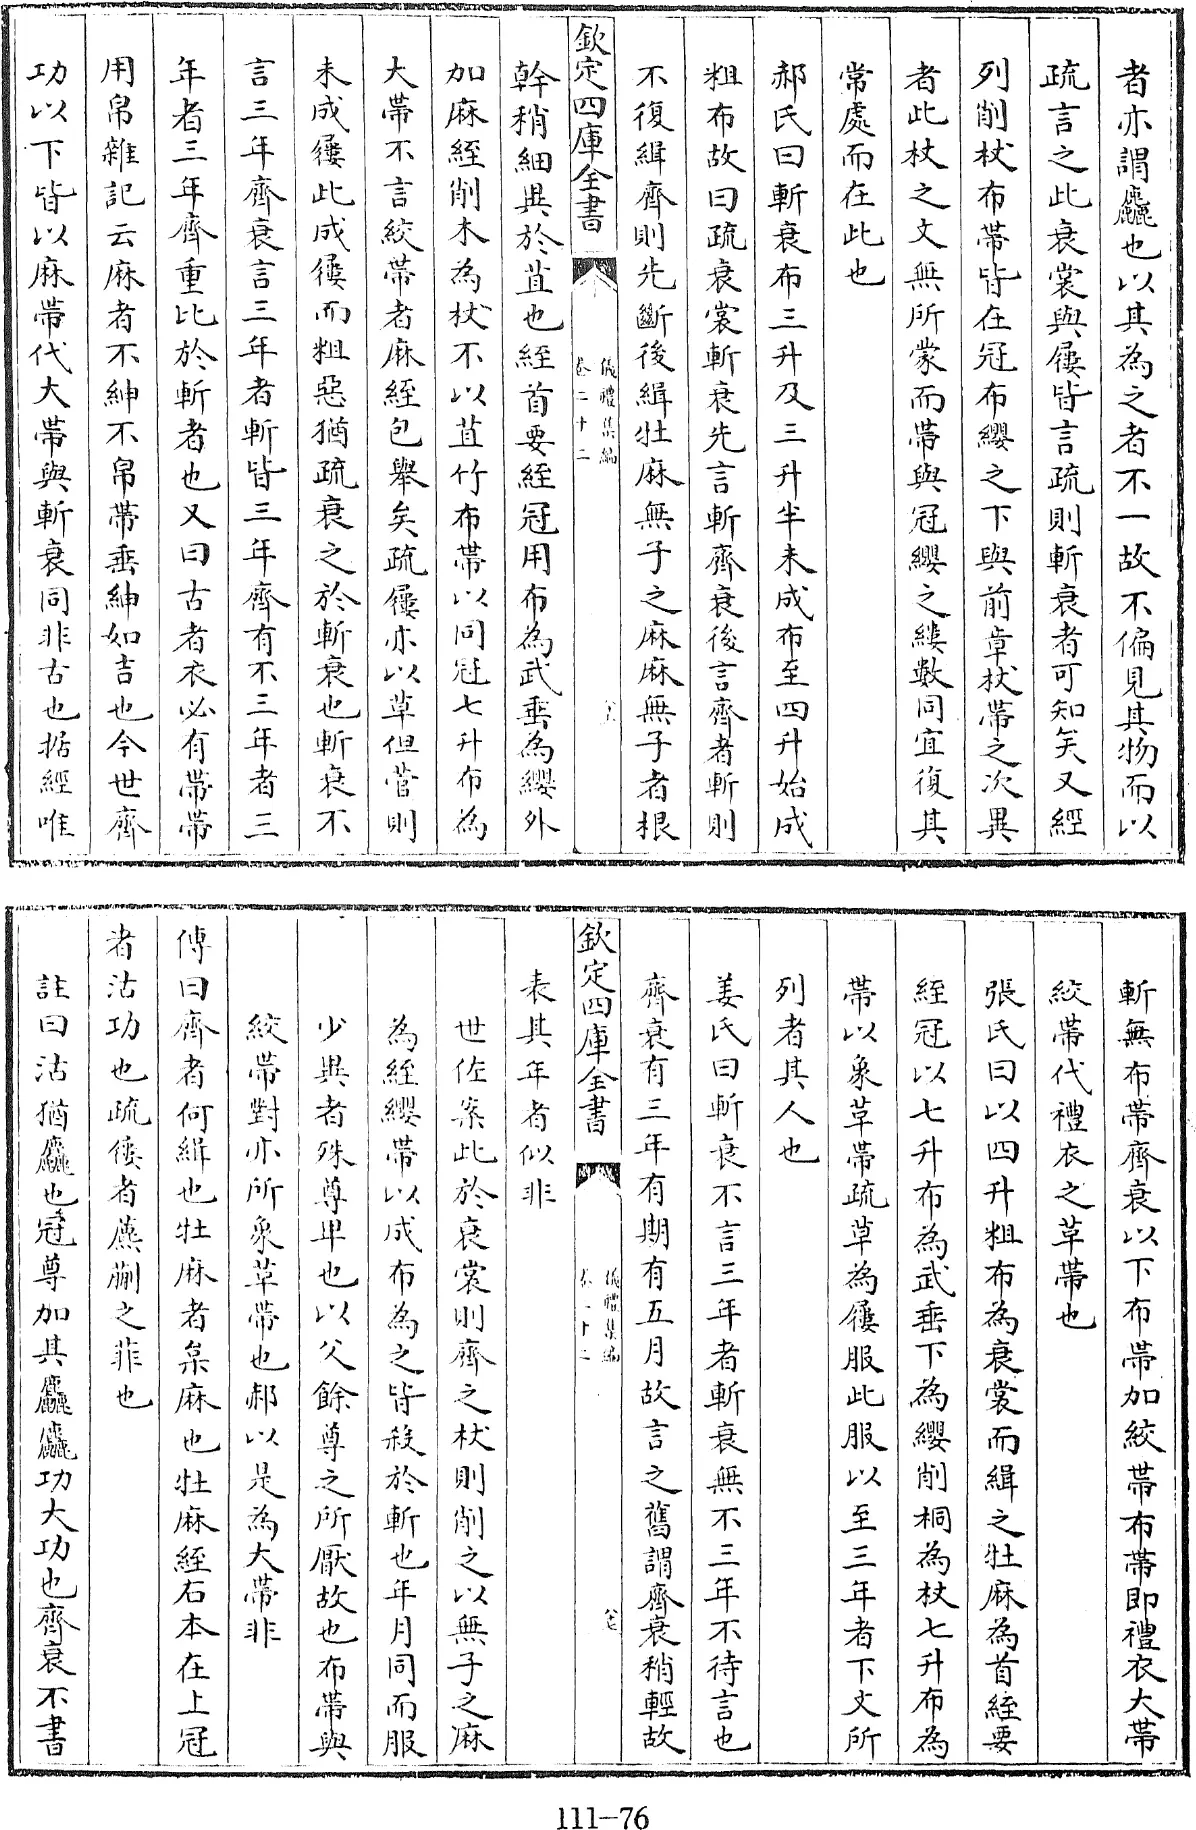 者亦謂麤也以其為之者不一故不偏見其物而以
疏言之此衰裳與屨皆言疏則斬衰者可知矣又經
列削杖布帶皆在冠布纓之下與前章杖帶之次異
者此杖之文無所蒙而帶與冠纓之縷數同宜復其
常處而在此也
郝氏曰斬衰布三升及三升半未成布至四升始成
粗布故曰疏衰裳斬衰先言斬齊衰後言齊者斬則
不復緝齊則先斷後緝牡麻無子之麻麻無子者根
欽定四庫全書
儀禮集編
卷二十二
幹稍細異於苴也絰首要絰冠用布為武垂為纓外
加麻絰削木為杖不以苴竹布帶以同冠七升布為
大帶不言絞帶者麻絰包舉矣疏屨亦以草但菅則
未成屨此成屨而粗惡猶疏衰之於斬衰也斬衰不
言三年齊衰言三年者斬皆三年齊有不三年者三
年者三年齊重比於斬者也又曰古者衣必有帶帶
用帛雜記云麻者不紳不帛帶垂紳如吉也今世齊
功以下皆以麻帶代大帶與斬衰同非古也㨿經唯
斬無布帶齊衰以下布帶加絞帶布帶即禮衣大帶
絞帶代禮衣之草帶也
張氏曰以四升粗布為衰裳而緝之牡麻為首絰要
絰冠以七升布為武垂下為纓削桐為杖七升布為
帶以象草帶疏草為屨服此服以至三年者下文所
列者其人也
姜氏曰斬衰不言三年者斬衰無不三年不待言也
齊衰有三年有期有五月故言之舊謂齊衰稍輕故
欽定四庫全書
儀禮集編
卷二十二
表其年者似非
世佐案此於衰裳則齊之杖則削之以無子之麻
為絰纓帶以成布為之皆殺於斬也年月同而服
少異者殊尊卑也以父餘尊之所厭故也布帶與
絞帶對亦所象草帶也郝以是為大帶非
傳曰齊者何緝也牡麻者枲麻也牡麻絰右本在上冠
者沽功也疏屨者藨蒯之菲也
註曰沽猶麤也冠尊加其麤麤功大功也齊衰不書
111-76